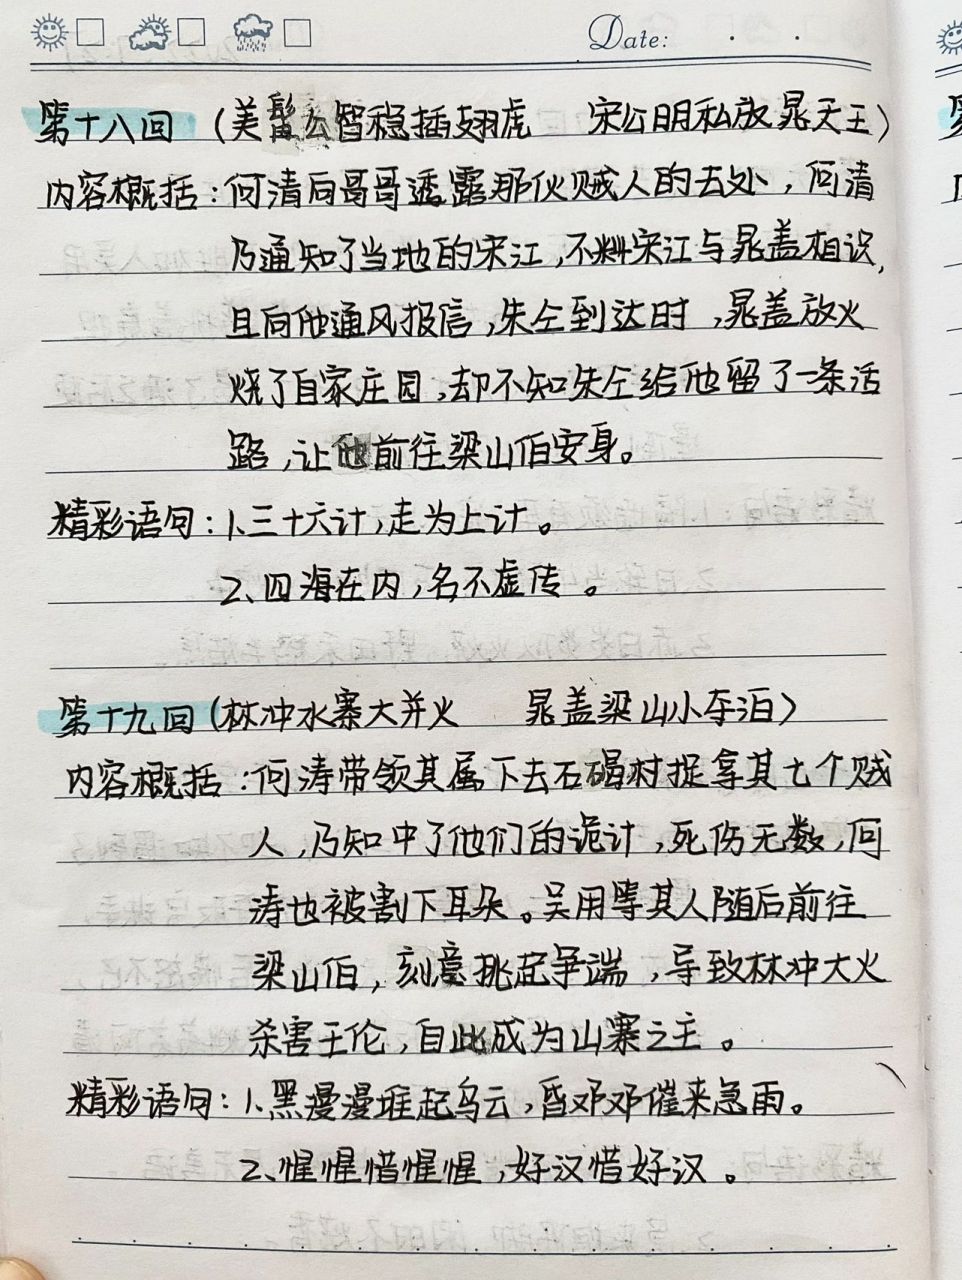 Date:
第十八回（美髯公智稳插翅虎 宋公明私放晁天王）
内容概括：何清向哥哥透露那伙贼人的去处，何清
乃通知了当地的宋江，不料宋江与晁盖相识，
且向他通风报信，朱仝到达时，晁盖放火
烧了自家庄园，却不知朱仝给他留了一条活
路，让他前往梁山伯安身。
精彩语句：1、三十六计，走为上计。
2、四海在内，名不虚传。
第十九回（林冲水寨大并火 晁盖梁山小夺泊）
内容概括：何涛带领其属下去石碣村捉拿其七个贼
人，乃知中了他们的诡计，死伤无数，何
涛也被割下耳朵。吴用等其人随后前往
梁山伯，刻意挑起争端，导致林冲大火
杀害王伦，自此成为山寨之主。
精彩语句：1、黑漫漫堆起乌云，昏邓邓催来急雨。
2、惺惺惜惺惺，好汉惜好汉。